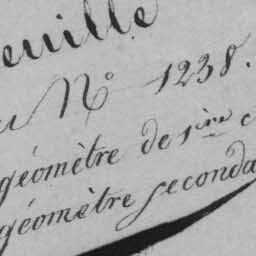 euille
u N° 1238.
géomètre de 1ère c
géomètre seconda